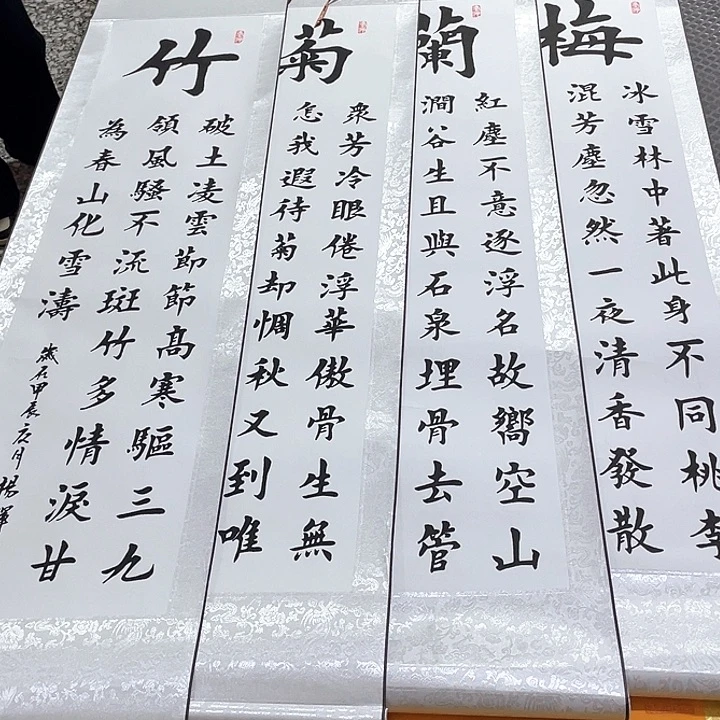 梅
冰雪林中著此身不同桃李
混芳塵忽然一夜清香發散
蘭
紅塵不意逐浮名故嚮空山
澗谷生且與石泉埋骨去管
菊
衆芳冷眼倦浮華傲骨生無
怎我遐待菊却惆秋又到唯
竹
破土凌雲節節髙寒驅三九
領風騷不流斑竹多情淚甘
為春山化雪濤
歲在甲辰 月楊